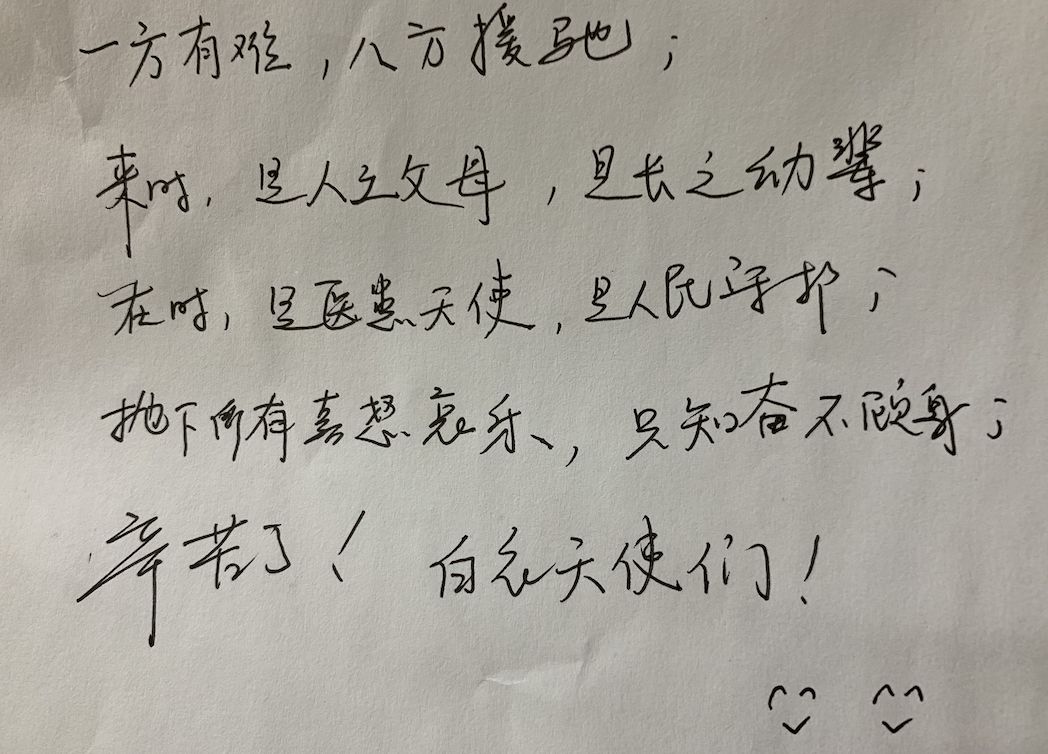 一方有难，八方援驰；
来时，是人之父母，是长之幼辈；
在时，是医患天使，是人民守护；
抛下所有喜怒哀乐、，只知奋不顾身；
辛苦了！ 白衣天使们！